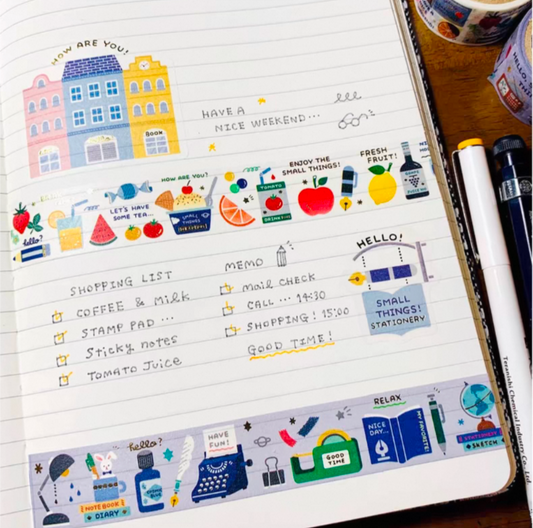 HOW ARE YOU!
BOOK
HAVE A
NICE WEEKEND...
hello!
LET'S HAVE
SOME TEA...
HOW ARE YOU?
SMALL
THINGS
TOMATO
ENJOY THE
SMALL THINGS!
FRESH
FRUIT!
SHOPPING LIST
COFFEE & Milk
STAMP PAD ...
Sticky notes
TOMATO Juice
MEMO
mail CHECK
CALL ... 14:30
SHOPPING! 15:00
GOOD TIME!
HELLO!
SMALL
THINGS!
STATIONERY
hello?
NOTE BOOK
DIARY
HAVE
FUN!
GOOD
TIME
RELAX
NICE
DAY...
MY FAVORITE!
SKETCH
Teranishi Chemical Industry Co., Ltd.